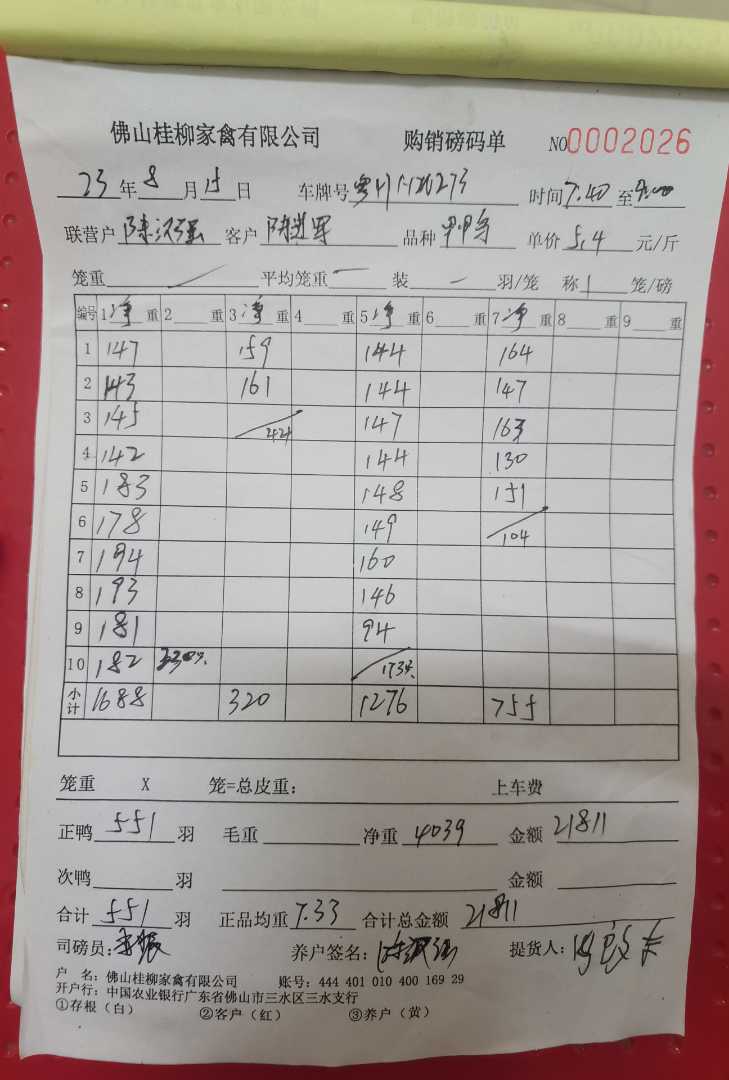 佛山桂柳家禽有限公司 购销磅码单 NO0002026
23年8月15日 车牌号 时间7.40至9.00
联营户陈汉强 客户陈进军 品种 单价5.4元/斤
笼重 平均笼重一 装一羽/笼 称1笼/磅
编号 1净重 2重 3净重 4重 5净重 6重 7净重 8重 9重
1 147 159 144 164
2 143 161 144 147
3 145 242 147 163
4 142 144 130
5 183 148 151
6 178 149 104
7 194 160
8 193 146
9 181 94
10 182
小计 1688 320 1276 755
笼重 X 笼=总皮重: 上车费
正鸭551羽 毛重 净重4039 金额21811
次鸭 羽 金额
合计551羽 正品均重7.33 合计总金额21811
司磅员: 养户签名: 提货人:
户 名: 佛山桂柳家禽有限公司 账号: 444 401 010 400 169 29
开户行: 中国农业银行广东省佛山市三水区三水支行
①存根(白) ②客户(红) ③养户(黄)